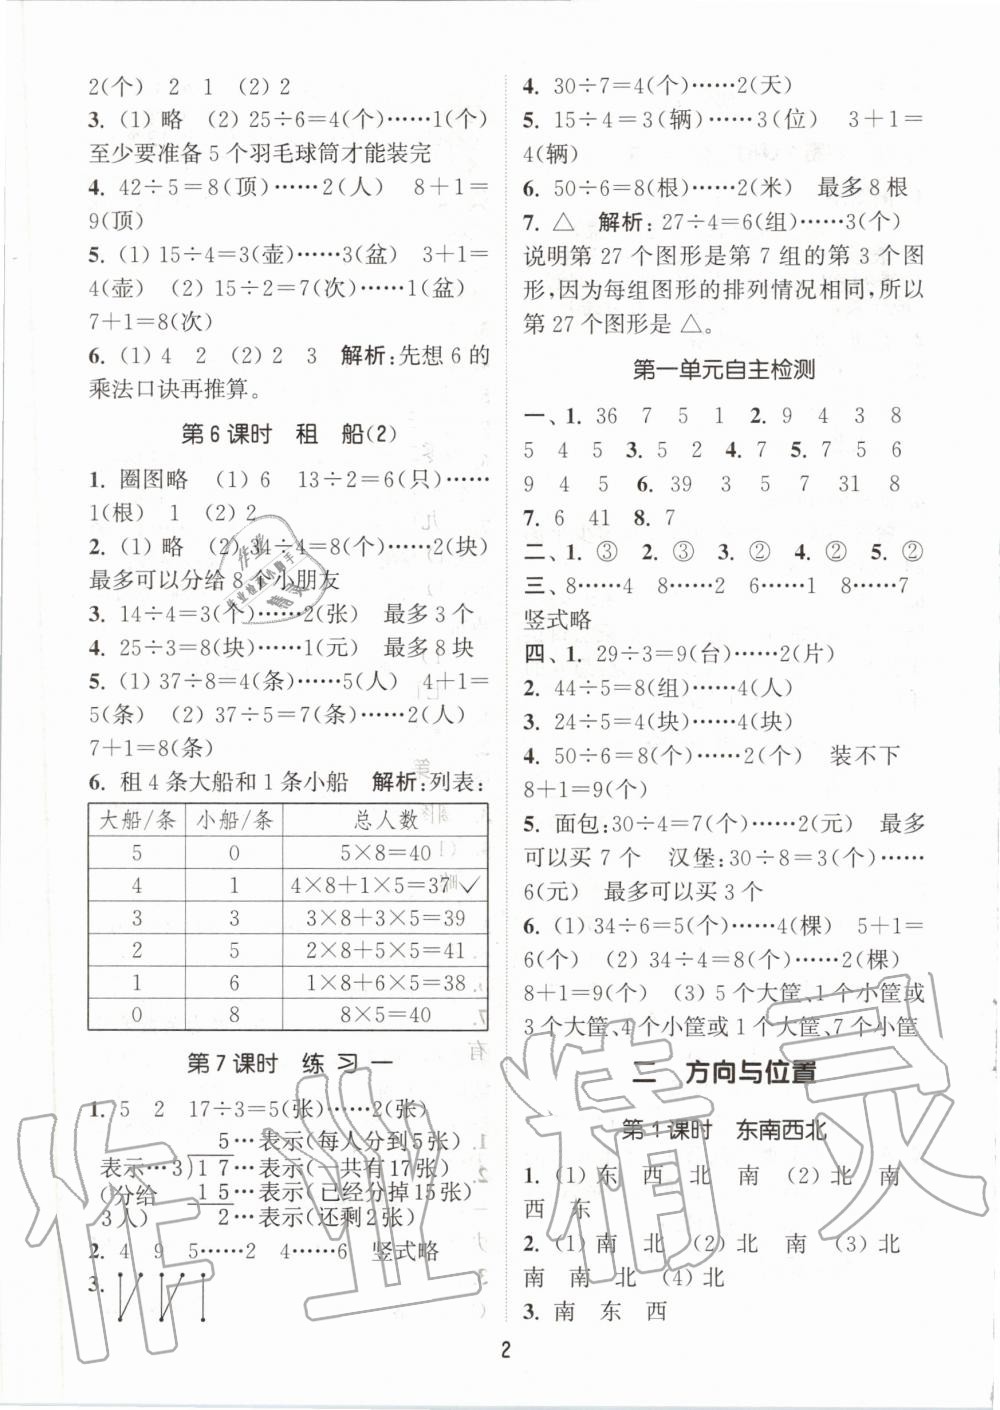 2(个)　2　1　(2) 2
3. (1) 略　(2) 25÷6=4(个)……1(个)
至少要准备 5 个羽毛球筒才能装完
4. 42÷5=8(顶)……2(人)　8+1=
9(顶)
5. (1) 15÷4=3(壶)……3(盆)　3+1=
4(壶)　(2) 15÷2=7(次)……1(盆)
7+1=8(次)
6. (1) 4　2　(2) 2　3　解析:先想 6 的
乘法口诀再推算。
第 6 课时　租　船(2)
1. 圈图略　(1) 6　13÷2=6(只)……
1(根)　1　(2) 2
2. (1) 略　(2) 34÷4=8(块)……2(块)
最多可以分给 8 个小朋友
3. 14÷4=3(个)……2(张)　最多 3 个
4. 25÷3=8(块)……1(元)　最多 8 块
5. (1) 37÷8=4(条)……5(人)　4+1=
5(条)　(2) 37÷5=7(条)……2(人)
7+1=8(条)
6. 租 4 条大船和 1 条小船　解析:列表:
大船/条　小船/条　总人数
5　0　5×8=40
4　1　4×8+1×5=37 ✓
3　3　3×8+3×5=39
2　5　2×8+5×5=41
1　6　1×8+6×5=38
0　8　8×5=40
第 7 课时　练 习 一
1. 5　2　17÷3=5(张)……2(张)
5…表示(每人分到5张)
表示…3)17…表示(一共有17张)
(分给　15…表示(已经分掉15张)
3人)　2…表示(还剩2张)
2. 4　9　5……2　4……6　竖式略
3.
4. 30÷7=4(个)……2(天)
5. 15÷4=3(辆)……3(位)　3+1=
4(辆)
6. 50÷6=8(根)……2(米)　最多 8 根
7. △　解析:27÷4=6(组)……3(个)
说明第 27 个图形是第 7 组的第 3 个图
形,因为每组图形的排列情况相同,所以
第 27 个图形是 △。
第一单元自主检测
一、1. 36　7　5　1　2. 9　4　3　8
5　4　5　3. 5　4. 7　5. 7　5　6
9　4　5　6. 39　3　5　7　31　8
7. 6　41　8. 7
二、1. ③　2. ③　3. ②　4. ②　5. ②
三、8……4　8……2　6……1　8……7
竖式略
四、1. 29÷3=9(台)……2(片)
2. 44÷5=8(组)……4(人)
3. 24÷5=4(块)……4(块)
4. 50÷6=8(个)……2(个)　装不下
8+1=9(个)
5. 面包:30÷4=7(个)……2(元)　最多
可以买 7 个　汉堡:30÷8=3(个)……
6(元)　最多可以买 3 个
6. (1) 34÷6=5(个)……4(棵)　5+1=
6(个)　(2) 34÷4=8(个)……2(棵)
8+1=9(个)　(3) 5 个大筐、1 个小筐或
3 个大筐、4 个小筐或 1 个大筐、7 个小筐
二　方向与位置
第 1 课时　东南西北
1. (1) 东　西　北　南　(2) 北　南
西　东
2. (1) 南　北　(2) 北　南　(3) 北
南　南　北　(4) 北
3. 南　东　西
2
作业精灵